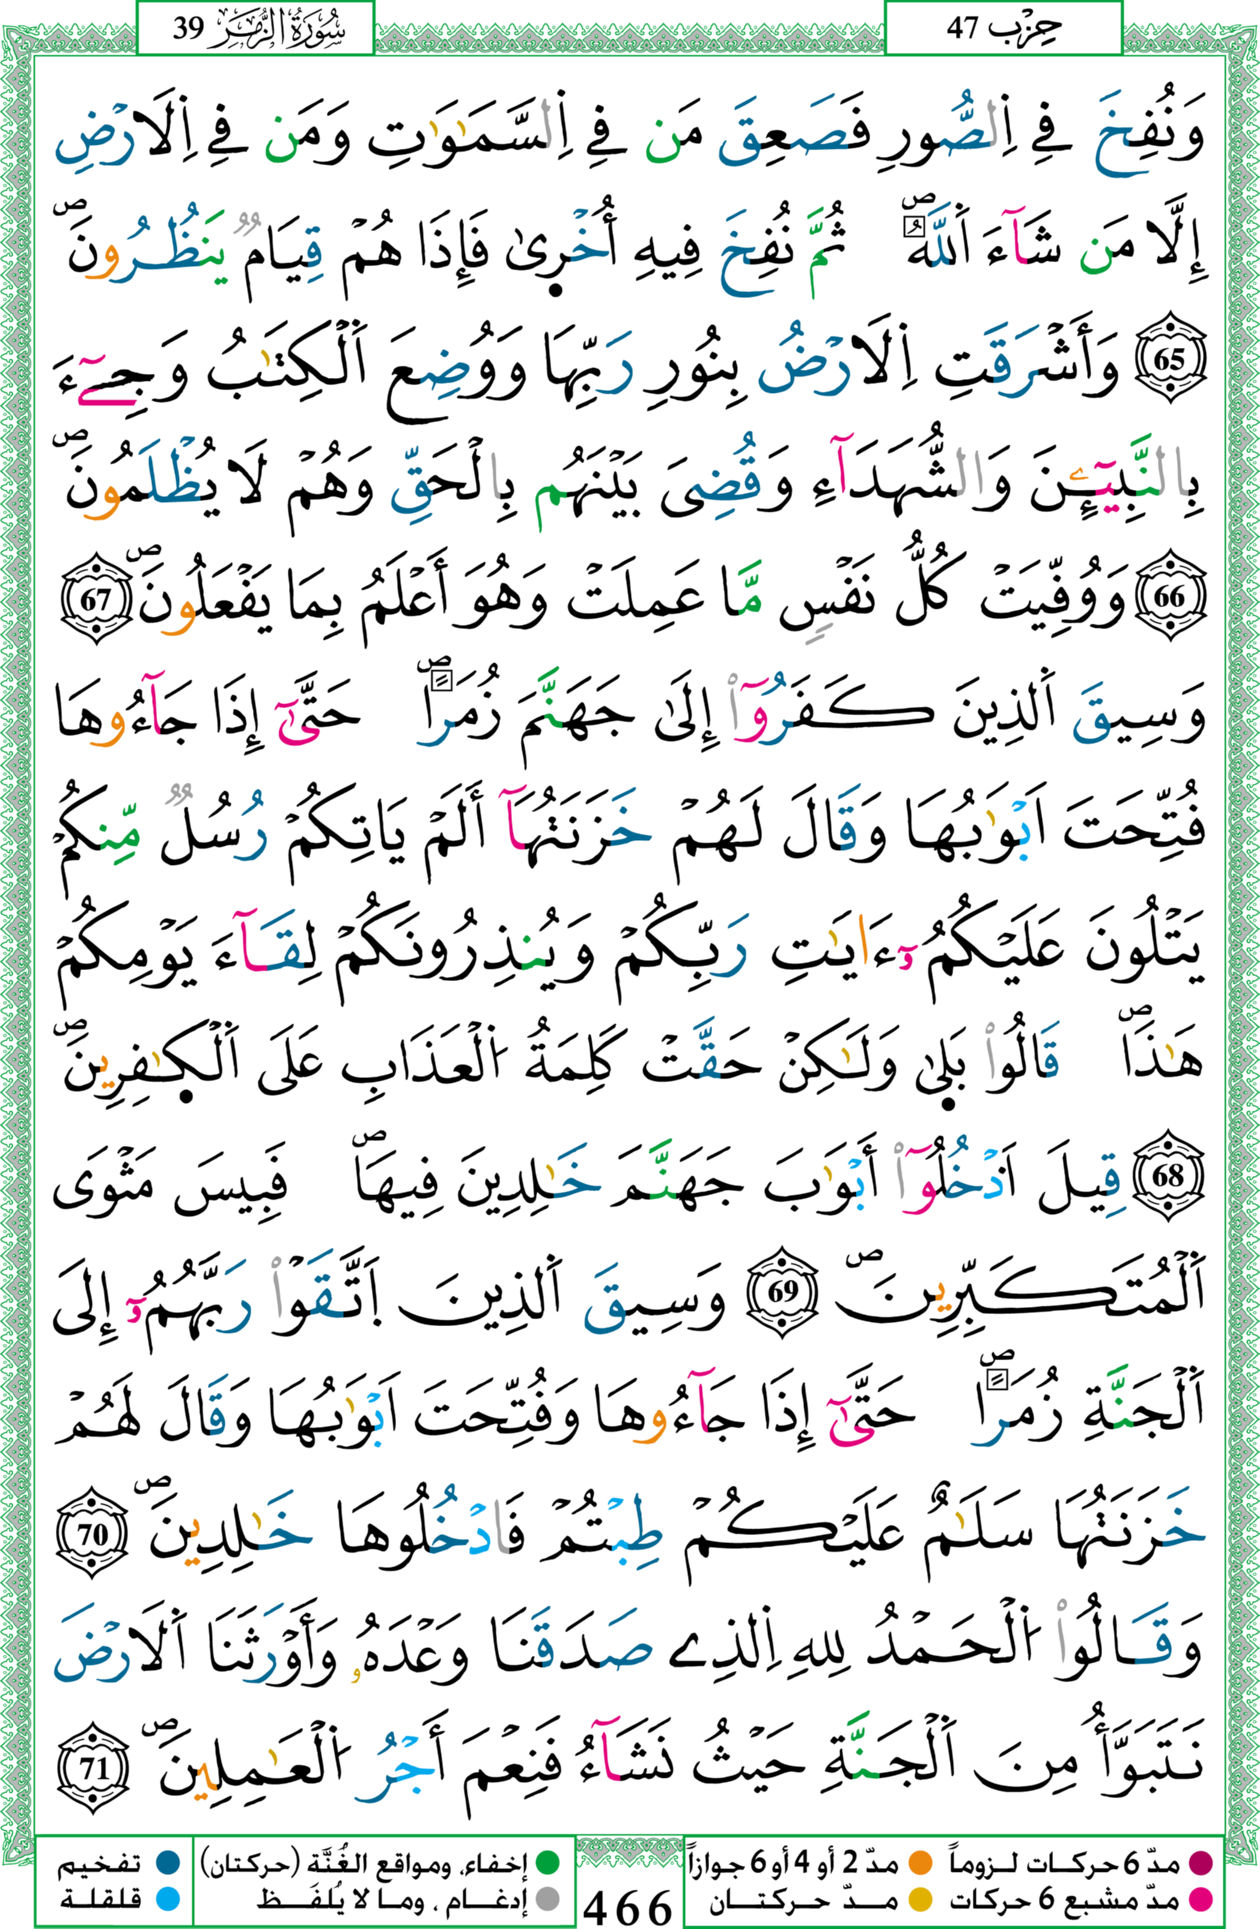 سُورَةُ الزُّمَرِ 39
حِزْب 47
وَنُفِخَ فِے اِ۬لصُّورِ فَصَعِقَ مَن فِے اِ۬لسَّمَٰوَٰتِ وَمَن فِے اِ۬لَارْضِ
إِلَّا مَن شَآءَ اَ۬للَّهُۖ ثُمَّ نُفِخَ فِيهِ أُخْر۪ىٰ فَإِذَا هُمْ قِيَامٞ يَنظُرُونَۖ
65 وَأَشْرَقَتِ اِ۬لَارْضُ بِنُورِ رَبِّهَا وَوُضِعَ اَ۬لْكِتَٰبُ وَجِےٓءَ
بِالنَّبِيٓـِٕۧنَ وَالشُّهَدَآءِ وَقُضِىَ بَيْنَهُم بِالْحَقِّ وَهُمْ لَا يُظْلَمُونَۖ
66 وَوُفِّيَتْ كُلُّ نَفْسٖ مَّا عَمِلَتْ وَهُوَ أَعْلَمُ بِمَا يَفْعَلُونَۖ 67
وَسِيقَ اَ۬لذِينَ كَفَرُوٓاْ إِلَىٰ جَهَنَّمَ زُمَراًۖ حَتَّىٰٓ إِذَا جَآءُوهَا
فُتِّحَتَ اَبْوَٰبُهَا وَقَالَ لَهُمْ خَزَنَتُهَآ أَلَمْ يَاتِكُمْ رُسُلٞ مِّنكُمْ
يَتْلُونَ عَلَيْكُمُۥٓ ءَايَٰتِ رَبِّكُمْ وَيُنذِرُونَكُمْ لِقَآءَ يَوْمِكُمْ
هَٰذَاۖ قَالُواْ بَل۪ىٰ وَلَٰكِنْ حَقَّتْ كَلِمَةُ اُ۬لْعَذَابِ عَلَى اَ۬لْكٰ۪فِرِينَۖ
68 قِيلَ اَ۟دْخُلُوٓاْ أَبْوَٰبَ جَهَنَّمَ خَٰلِدِينَ فِيهَاۖ فَبِيسَ مَثْوَى
اَ۬لْمُتَكَبِّرِينَۖ 69 وَسِيقَ اَ۬لذِينَ اَ۪تَّقَوْاْ رَبَّهُمُۥٓ إِلَى
اَ۬لْجَنَّةِ زُمَراًۖ حَتَّىٰٓ إِذَا جَآءُوهَا وَفُتِّحَتَ اَبْوَٰبُهَا وَقَالَ لَهُمْ
خَزَنَتُهَا سَلَٰمٌ عَلَيْكُمْ طِبْتُمْ فَادْخُلُوهَا خَٰلِدِينَۖ 70
وَقَالُواْ اُ۬لْحَمْدُ لِلهِ اِ۬لذِے صَدَقَنَا وَعْدَهُۥ وَأَوْرَثَنَا اَ۬لَارْضَ
نَتَبَوَّأُ مِنَ اَ۬لْجَنَّةِ حَيْثُ نَشَآءُ فَنِعْمَ أَجْرُ اُ۬لْعَٰمِلِينَۖ 71
مدّ 6 حركات لـزوماً مدّ 2 أو 4 أو 6 جوازاً
مدّ مشبع 6 حركات مـدّ حـركتـان
466
إخفاء، ومواقع الغُنَّة (حركتان) تفخيم
إدغـام ، ومـا لا يُلفَـظ قلقلة